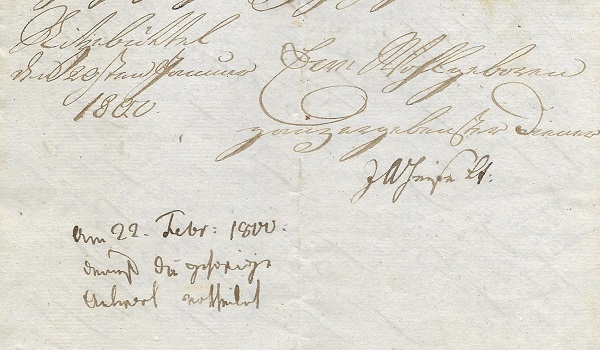 Ritzebüttel
den 20sten Januar
1800.
Ew. Wohlgeboren
ganz ergebenster Diener
Am 22. Febr: 1800.
die gehörige
Antwort ertheilet